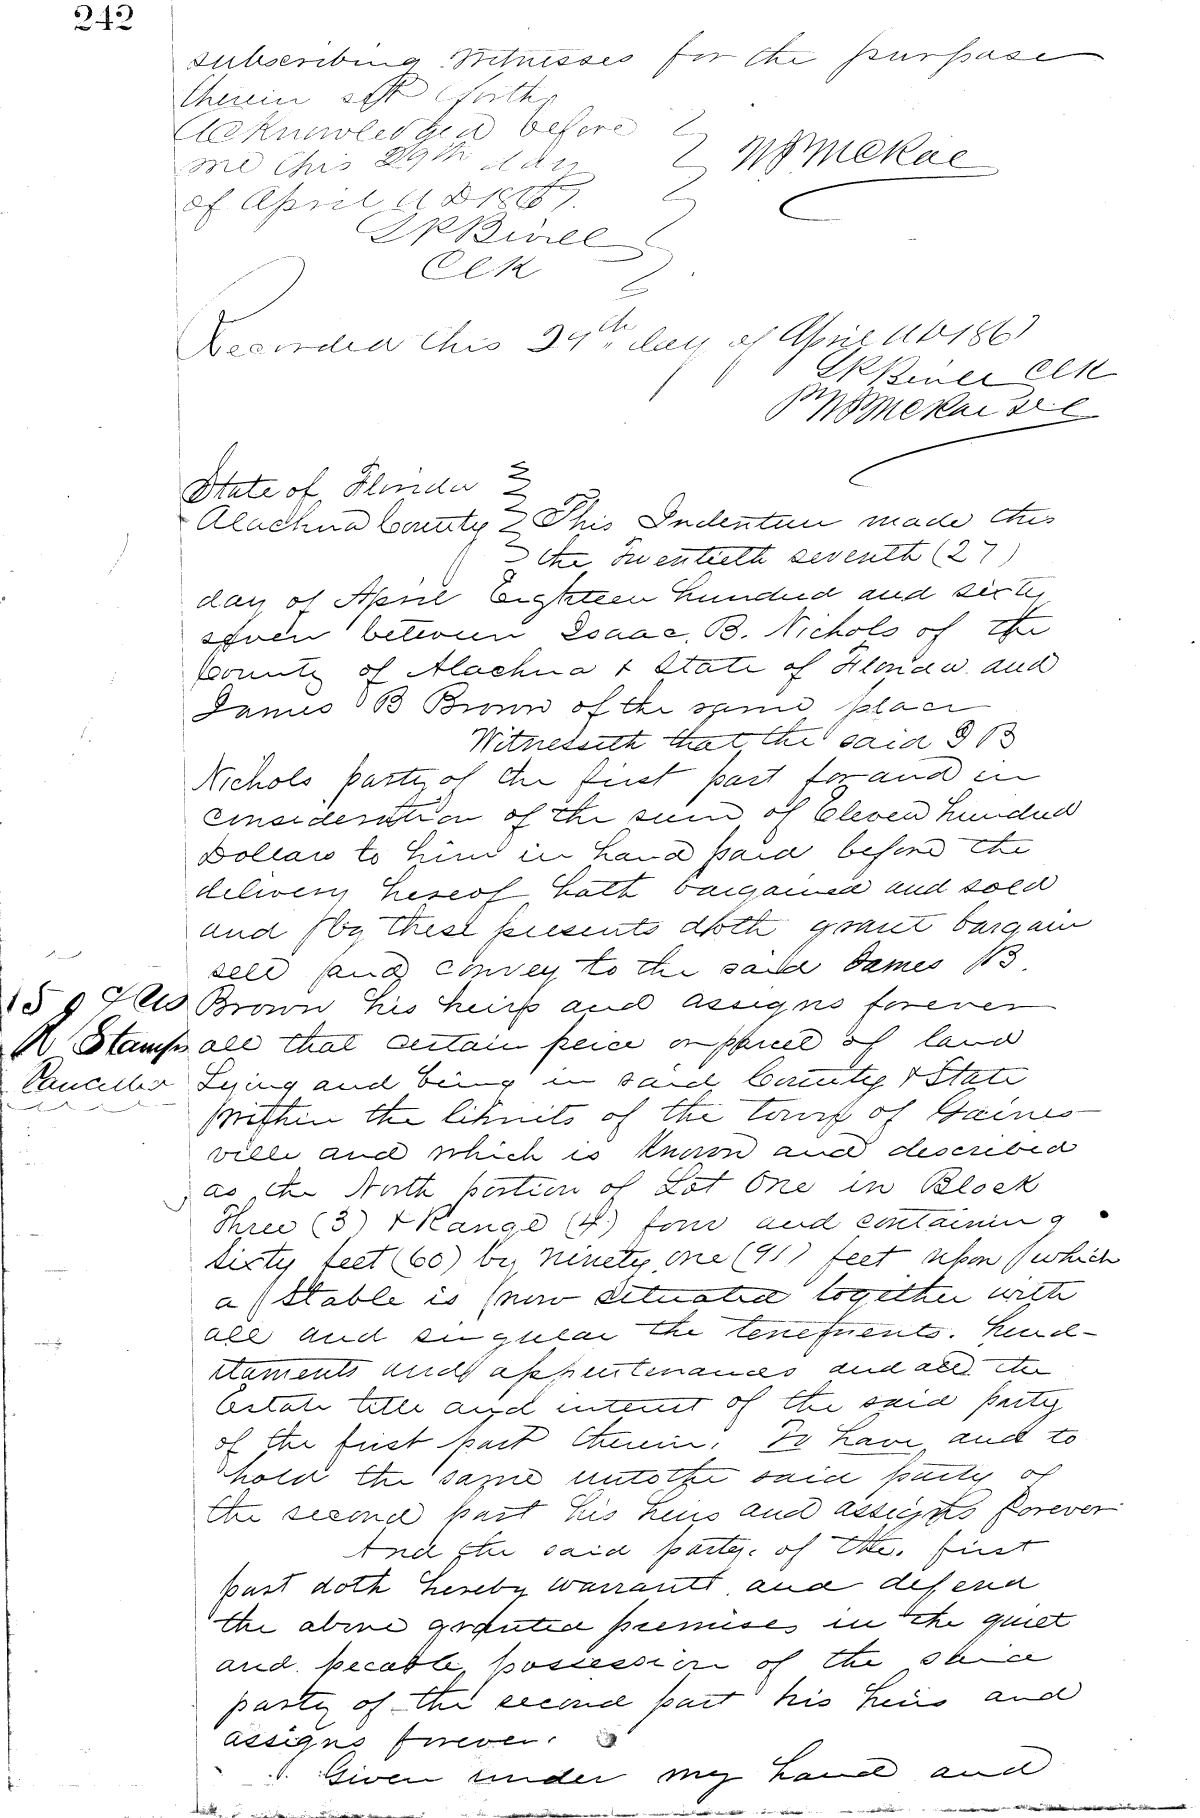 242
subscribing Witnesses for the purpose
therein set forth
Acknowledged before
me this 29th day
of April A D 1867.
W S McRae
Clk
Recorded this 29th day of April AD 1867
Clk
State of Florida
Alachua County This Indenture made this
the Twentieth seventh (27)
day of April Eighteen hundred and sixty
seven between Isaac B. Nichols of the
County of Alachua & State of Florida and
James B Brown of the same place
Witnesseth that the said I B
Nichols party of the first part for and in
consideration of the sum of Eleven hundred
Dollars to him in hand paid before the
delivery hereof hath bargained and sold
and by these presents doth grant bargain
sell and convey to the said James B.
Brown his heirs and assigns forever
150
R Stamps
Cancelled
all that certain peice or parcel of land
Lying and being in said County & State
Within the limits of the town of Gaines
ville and which is known and described
as the North portion of Lot One in Block
Three (3) & Range (4) four and containing
sixty feet (60) by ninety one (91) feet upon which
a Stable is now situated together with
all and singular the tenements. hered-
itaments and appurtenances and all the
Estate title and interest of the said party
of the first part therein. To have and to
hold the same unto the said party of
the second part his heirs and assigns forever
And the said party. of the. first
part doth hereby warrantt and defend
the above granted premises in the quiet
and pecable possession of the said
party of the second part his heirs and
assigns forever.
Given under my hand and